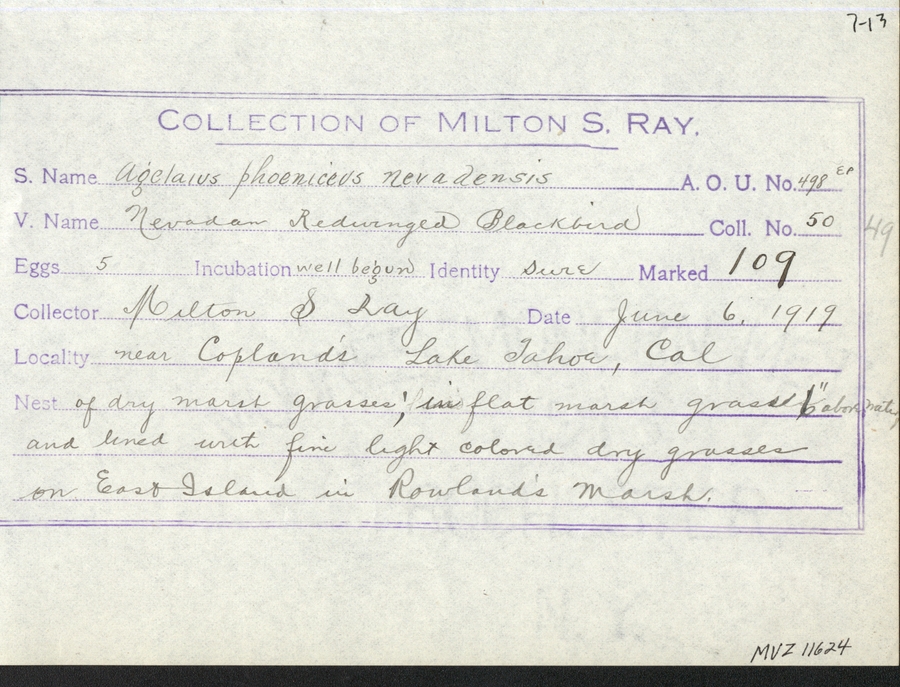 7-13
COLLECTION OF MILTON S. RAY.
S. Name Agelaius phoeniceus nevadensis A. O. U. No. 498 EP
V. Name Nevadan Redwinged Blackbird Coll. No. 50
49
Eggs 5 Incubation well begun Identity sure Marked 109
Collector Milton S Ray Date June 6, 1919
Locality near Copland's Lake Tahoe, Cal
Nest of dry marsh grasses; in flat marsh grass 6" above water
and lined with fine light colored dry grasses
on East Island in Rowland's Marsh.
MVZ 11624